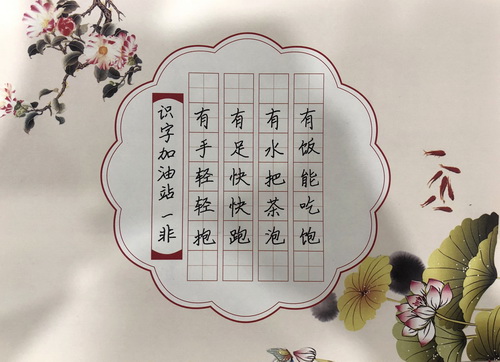 有饭能吃饱
有水把茶泡
有足快快跑
有手轻轻抱
识字加油站一非